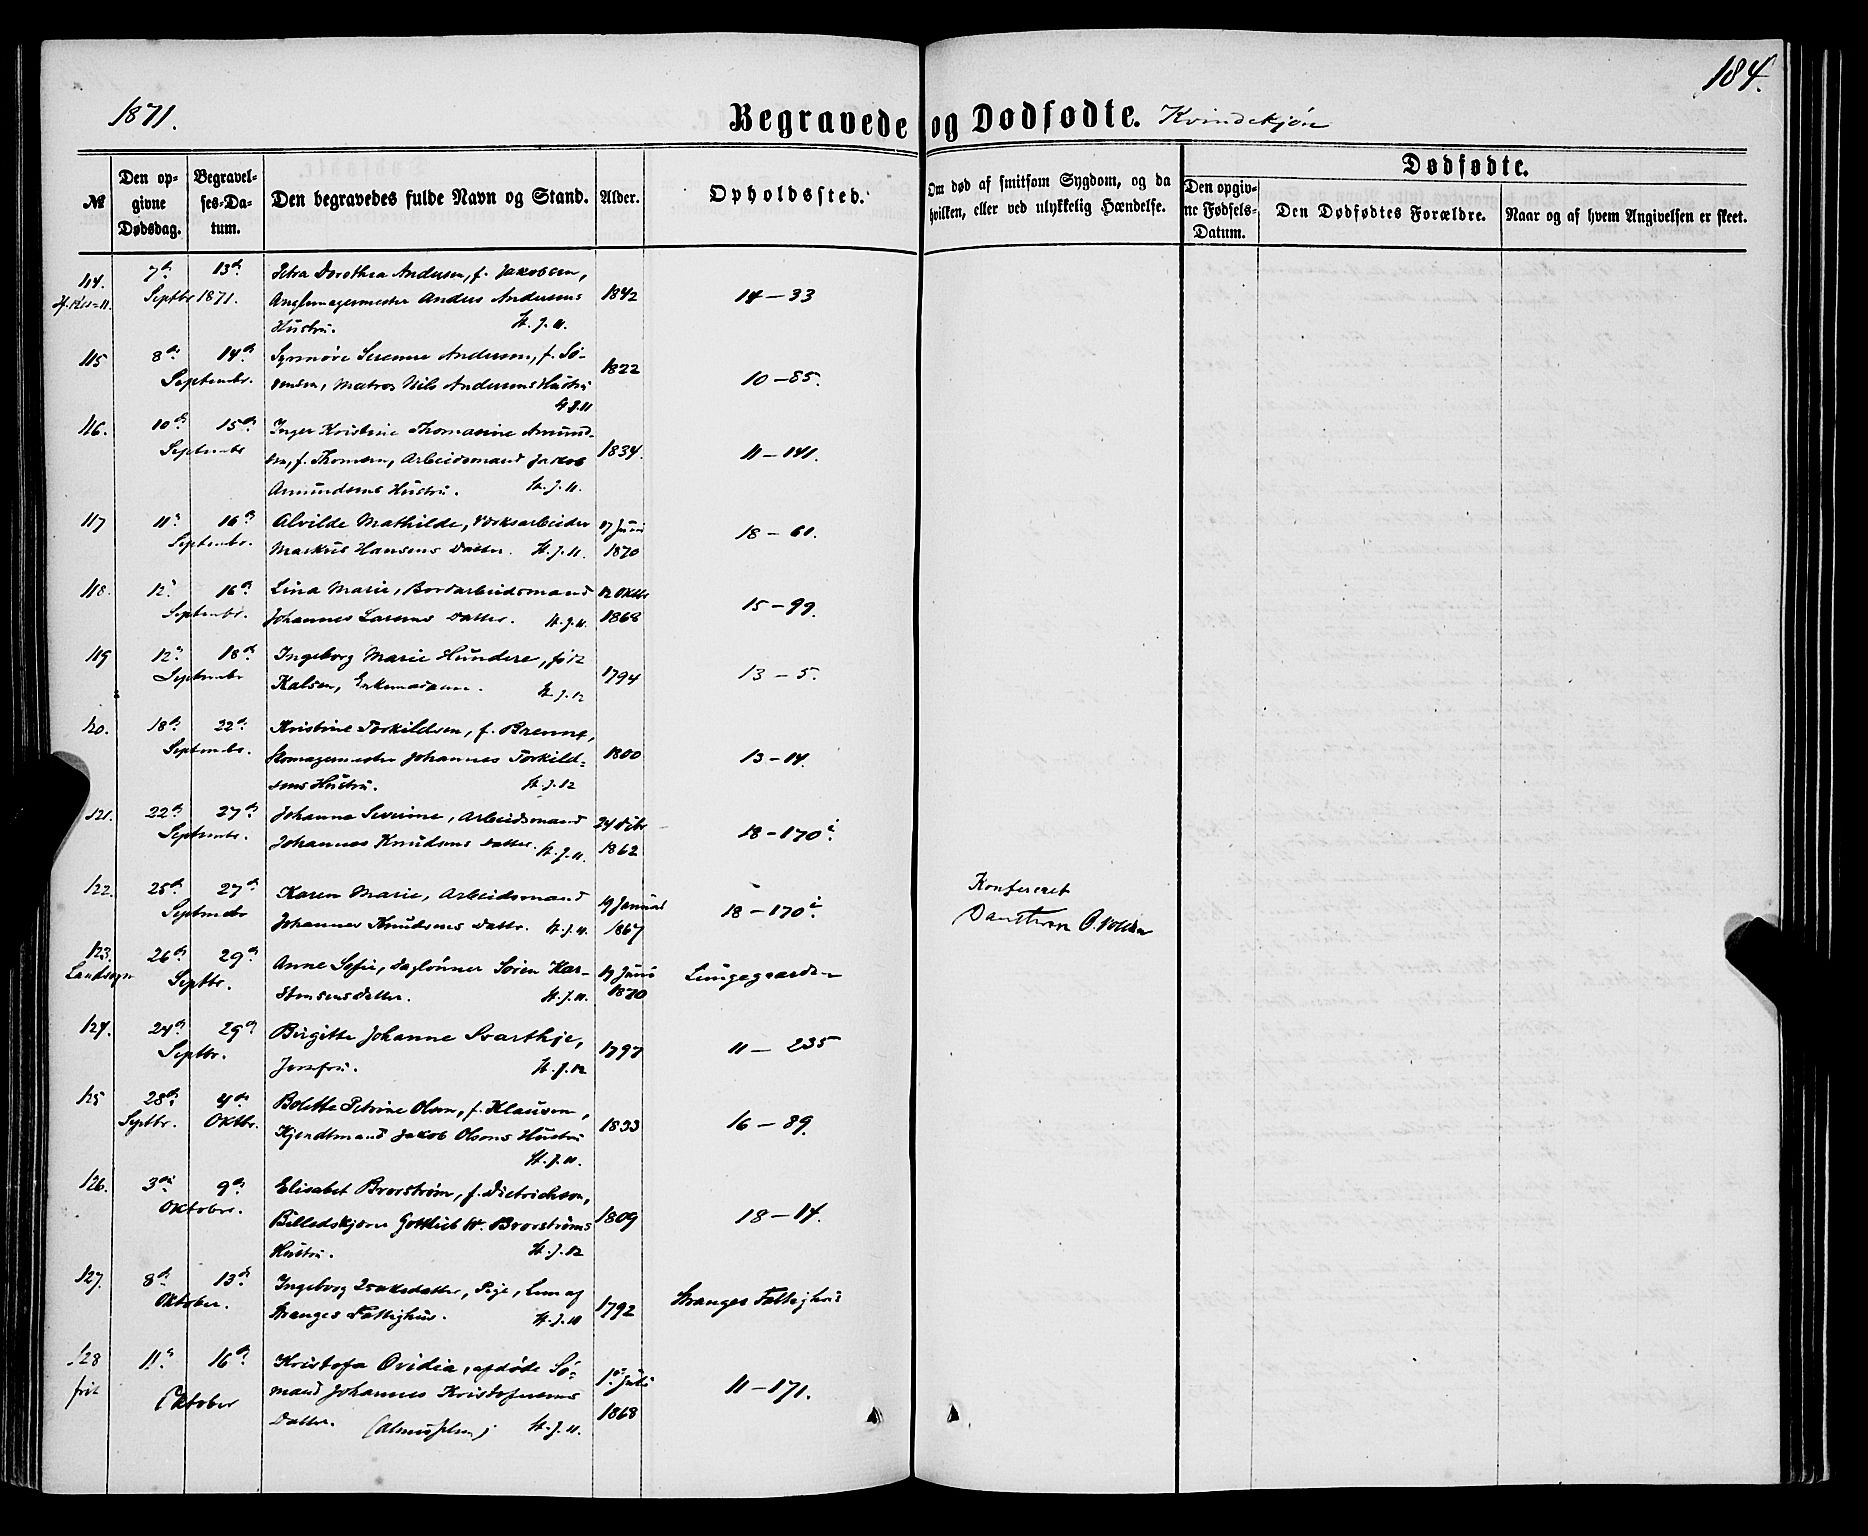 1871.
184.
Begravede og Dødfødte. Kvindekjøn
№
Den opgivne Dødsdag.
Begravelses-Datum.
Den begravedes fulde Navn og Stand.
Alder.
Opholdssted.
Om død af smitsom Sygdom, og da hvilken, eller ved ulykkelig Hændelse.
Dødfødte.
Den opgivne Fødsels-Datum.
Den Dødfødtes Forældre.
Naar og af hvem Angivelsen er skeet.
114. 7de 13de Petra Dorothea Andersen, f. Jakobsen,
Septbr 1871. Anders Andersens 1842 14 – 33
Hustru. St. J. 11.
115 8de 14de Synnøve Serenne Andersen, f. Sø-
Septembr. rensen, Matros Nils Andersens Hustru 1822 10 – 85.
St. J. 11
116. 10de 15de Inger Kristine Thomasine Amund-
Septembr sen, f. Thomsen, Arbeidsmand Jakob 1834. 11 – 141.
Amundsens Hustru. St. J. 11.
117 11te 16de Alvilde Mathilde, Værksarbeider 17 Juni
Septembr. Markus Hansens Datter. St. J. 11. 1870 18 – 61.
118. 12te 16de Lina Marie, Bordarbeidsmand 12 Oktbr
Septembr. Johannes Larsens Datter. St. J. 11. 1868 15 – 99.
119 12te 18de Ingeborg Marie Hundere, født
Septembr Kalsen, Enkemadame. St. J. 12 1794 13 – 5.
120. 18de 22de Kristine Torkildsen, f. Brenne,
Septembr. Skomagermester Johannes Torkild- 1800 13 – 14.
sens Hustru. St. J. 12
121. 22de 27de Johanna Severine, Arbeidsmand 24
Septembr. Johannes Knudsens Datter. St. J. 11. 1862 18 – 170 i.
122. 25de 27de Karen Marie, Arbeidsmand 19 Januar
Septembr Johannes Knudsens Datter. St. J. 11. 1867 18 – 170 i.
Konfereret
O.
123. 26de 29de Anne Sofie, Daglønner Søren Kar- 19 Juni
Landsogn Septbr. stensens Datter. St. J. 11. 1870 Lungegaarden
124. 24de 29de Birgitte Johanne Svarthje,
Septbr. Jomfru. St. J. 12 1797 11 – 235
125 28de 4de Bolette Petrine Olsen, f. Klausen,
Septbr. Oktbr. Kjendtmand Jakob Olsens Hustru 1833 16 – 89.
St. J. 11.
126. 3die 9de Elisabet Brorstrøm, f. Dietrichson,
Oktober. Billedskjærer Gottlieb W. Brorstrøms 1809 18 – 14.
Hustru. St. J. 12
127. 8de 13de Ingeborg Isaksdatter, Pige, Lem af
Oktober. Stranges Fattighus. St. J. 10 1792 Stranges Fattighus
128 11te 16de Kristofa Ovidia, afdøde Sø-
frit Oktober mand Johannes Kristofersens 1ste Juli 1868 11 – 171.
Datter. St. J. 11.